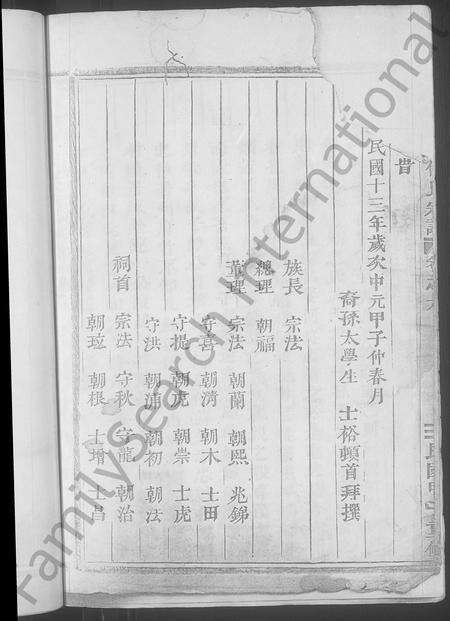 昔
民國十三年歲次中元甲子仲春月
裔孫太學生 士裕頓首拜撰
族長 宗法
總理 朝福
董理 宗法 朝蘭 朝熙 兆錦
守喜 朝清 朝木 士田
守提 朝虎 朝崇 士虎
守洪 朝浦 朝初 朝法
祠首 宗法 守秋 守龍 朝治
朝 朝根 士增 士昌
FamilySearch International